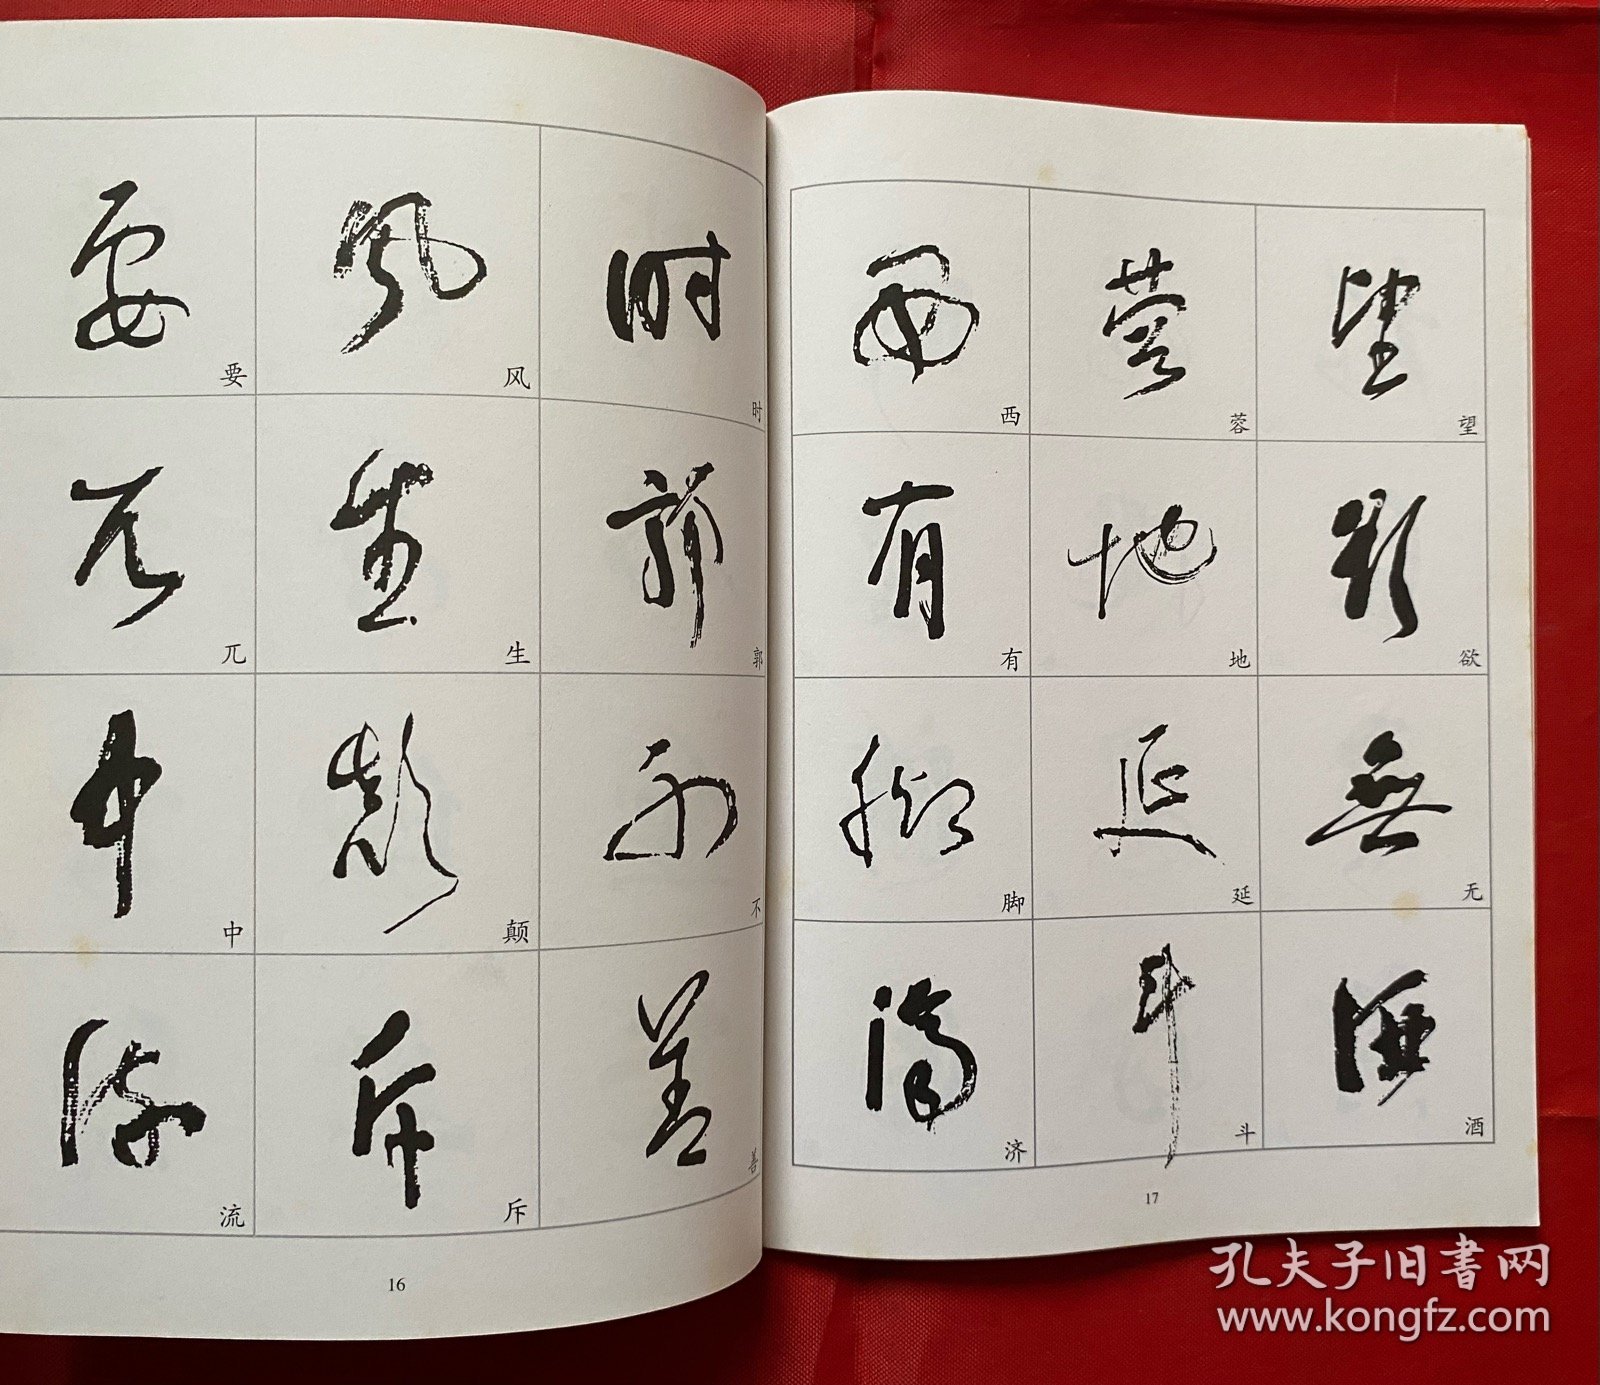 要 风 时
兀 生 郭
中 颠 不
流 斥 善
16
西 蓉 望
有 地 欲
脚 延 无
济 斗 酒
17
孔夫子旧书网
www.kongfz.com